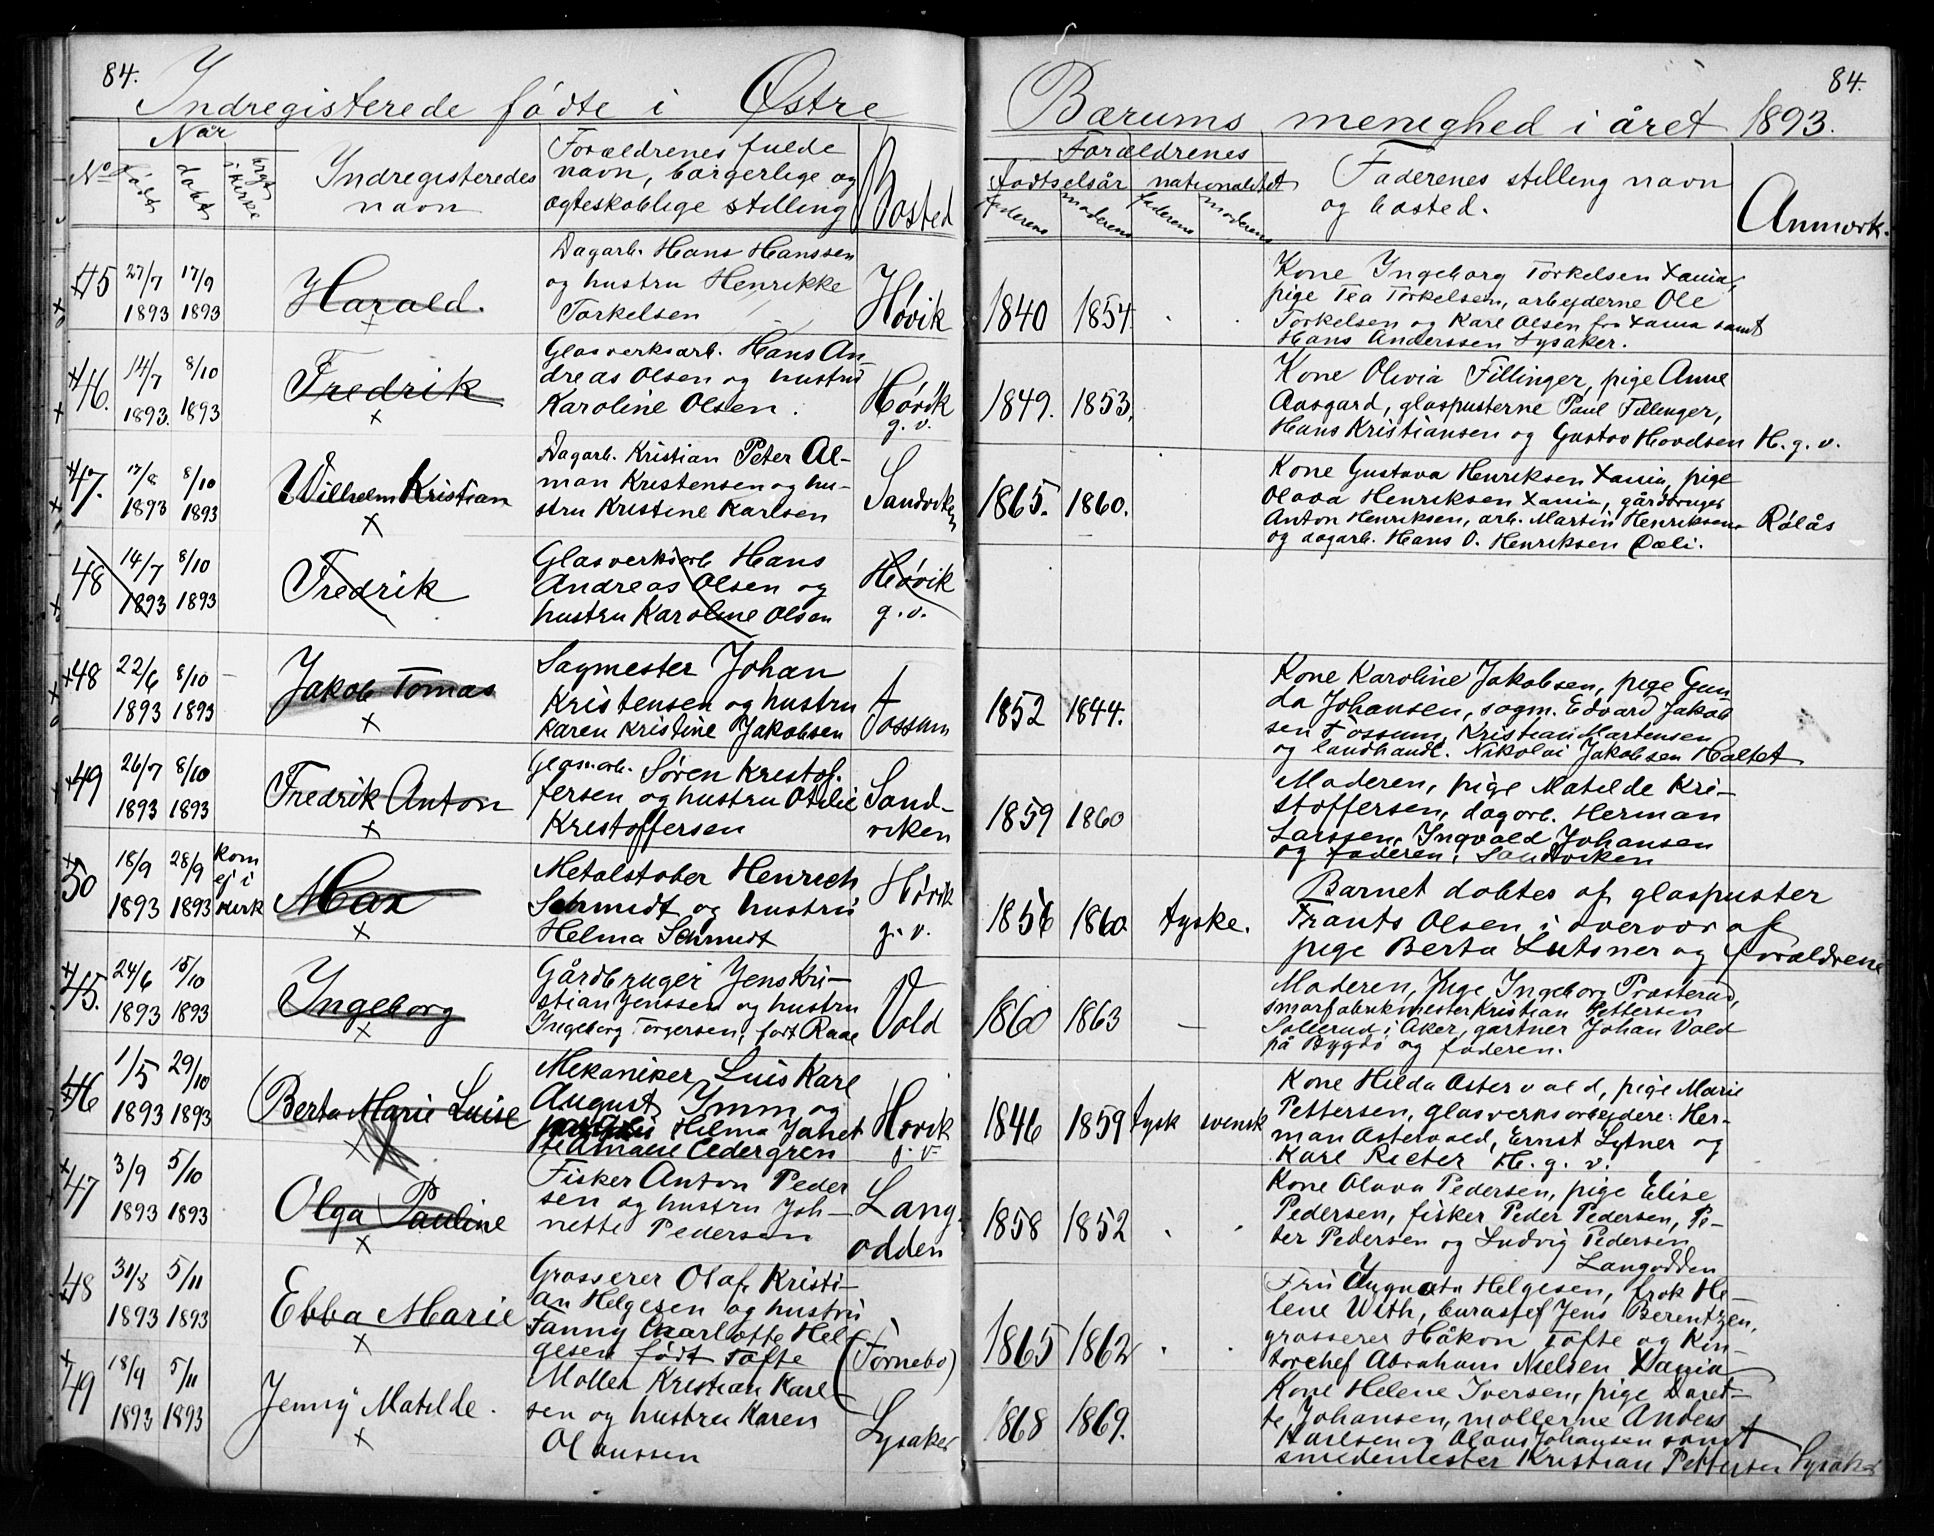 84.
Indregisterede fødte i Østre
No
Når
født
døbt
i kirke
Indregisteredes
navn
Forældrenes fulde
navn, borgerlige og
ægteskablige stilling
Bosted
45 27/7 1893 17/9 1893
Harald.
Dagarb. Hans Hanssen
og hustru Henrikke
Torkelsen
Høvik
46. 14/7 1893. 8/10 1893
Fredrik
Glasverksarb. Hans An-
dreas Olsen og hustru
Karoline Olsen.
Høvik
g. v.
47. 17/8 1893 8/10 1893
Wilhelm Kristian
Dagarb. Kristian Peter Al-
man Kristensen og hu-
stru Kristine Karlsen
Sandviken
48 14/7 1893 8/10 1893
Fredrik
Glasverksarb Hans
Andreas Olsen og
hustru Karoline Olsen
Høvik
g. v.
48 22/6 1893 8/10 1893 -
Jakob Tomas
Sagmester Johan
Kristensen og hustru
Karen Kristine Jakobsen
Fossum
49 26/7 1893 8/10 1893
Fredrik Anton
Søren Kristof-
fersen og hustru Otilie
Kristoffersen
Sand-
viken
50 18/9 1893 28/9 1893 kom
ej i
kirk
Max
Metalstøber Henrich
Schmidt og hustru
Helma Schmidt
Høvik
g. v.
45. 24/6 1893 15/10 1893
Ingeborg
Gårdbruger Jens Kri-
stian Jenssen og hustru
Ingeborg Torgersen, født Raae
Vold
46 1/5 1893 29/10 1893
Berta Marie Luise
Mekaniker Luis Karl
August Ymm og
Hilma Janet
Amalie Cedergren
Høvik
g. v.
47 3/9 1893 5/10 1893
Olga Pauline
Fisker Anton Peder
sen og hustru Joh-
nette Pedersen
Lang-
odden
48 31/8 1893 5/11 1893
Ebba Marie
Grosserer Olaf Kristi-
an Helgesen og hustru
Fanny Charlotte Hel
gesen født Tofte
(Fornebo)
49 18/9 1893 5/11 1893
Jenny Matilde.
Møller Kristian Karl-
sen og hustru Karen
Olaussen
Lysaker
84.
Bærums menighed i året 1893.
Forældrenes
fødselsår nationalitet
faderens moderens faderens moderens
Faderenes stilling navn
og bosted.
Anmærk.
1840 1854
Kone Ingeborg Torkelsen Xania,
pige Tea Torkelsen, arbejderne Ole
Torkelsen og Karl Olsen fra Xania samt
Hans Anderssen Lysaker.
1849. 1853.
Kone Olivia Fillinger, pige Anne
Aasgard, glaspusterne Paul Fillinger,
Hans Kristiansen og Gustav Hovdsen H. g. v.
1865. 1860.
Kone Gustava Henriksen Xania, pige
Olava Henriksen Xania, gårdbruger
Anton Henriksen, arb. Martin Henriksen Rølås
og dagarb. Hans O. Henriksen Dæli.
1852 1844.
Kone Karoline Jakobsen, pige Gun-
da Johansen, sagm. Edvard Jakob
sen Fossum, Kristian Martensen
og landhandl. Nikolai Jakobsen Haltet
1859 1860
Moderen, pige Matilde Kri-
stoffersen, dagarb. Herman
Larssen, Ingvald Johansen
og faderen, Sandviken
1856 1860 tyske.
Barnet døbtes af glaspuster
Frants Olsen i overvær af
pige Berta Lutsner og forældrene
1860 1863 -
Moderen, pige Ingeborg Præsterud,
smørfabrikmester Kristian Pettersen
Sollerud i Aker, gartner Johan Vold
på Bygdø og faderen.
1846 1859 tysk svensk
Kone Hilda Astervald, pige Marie
Pettersen, glasverksarbejdere: Her-
man Astervald, Ernst Lytner og
Karl Rieter H. g. v.
1858 1852
Kone Olava Pedersen, pige Elise
Pedersen, fisker Peder Pedersen, Pe-
ter Pedersen og Ludvig Pedersen
Langodden
1865 1862
Fru Augusta Helgesen, frøk He-
lene With, buraschef Jens Berentzen,
grosserer Håkon Tofte og Kon-
torchef Abraham Nielsen Xania
1868 1869.
Kone Helene Iversen, pige Daret-
te Johansen, møllerne Anders
Karlsen og Olaus Johansen samt
smedemester Kristian Pettersen Lysaker